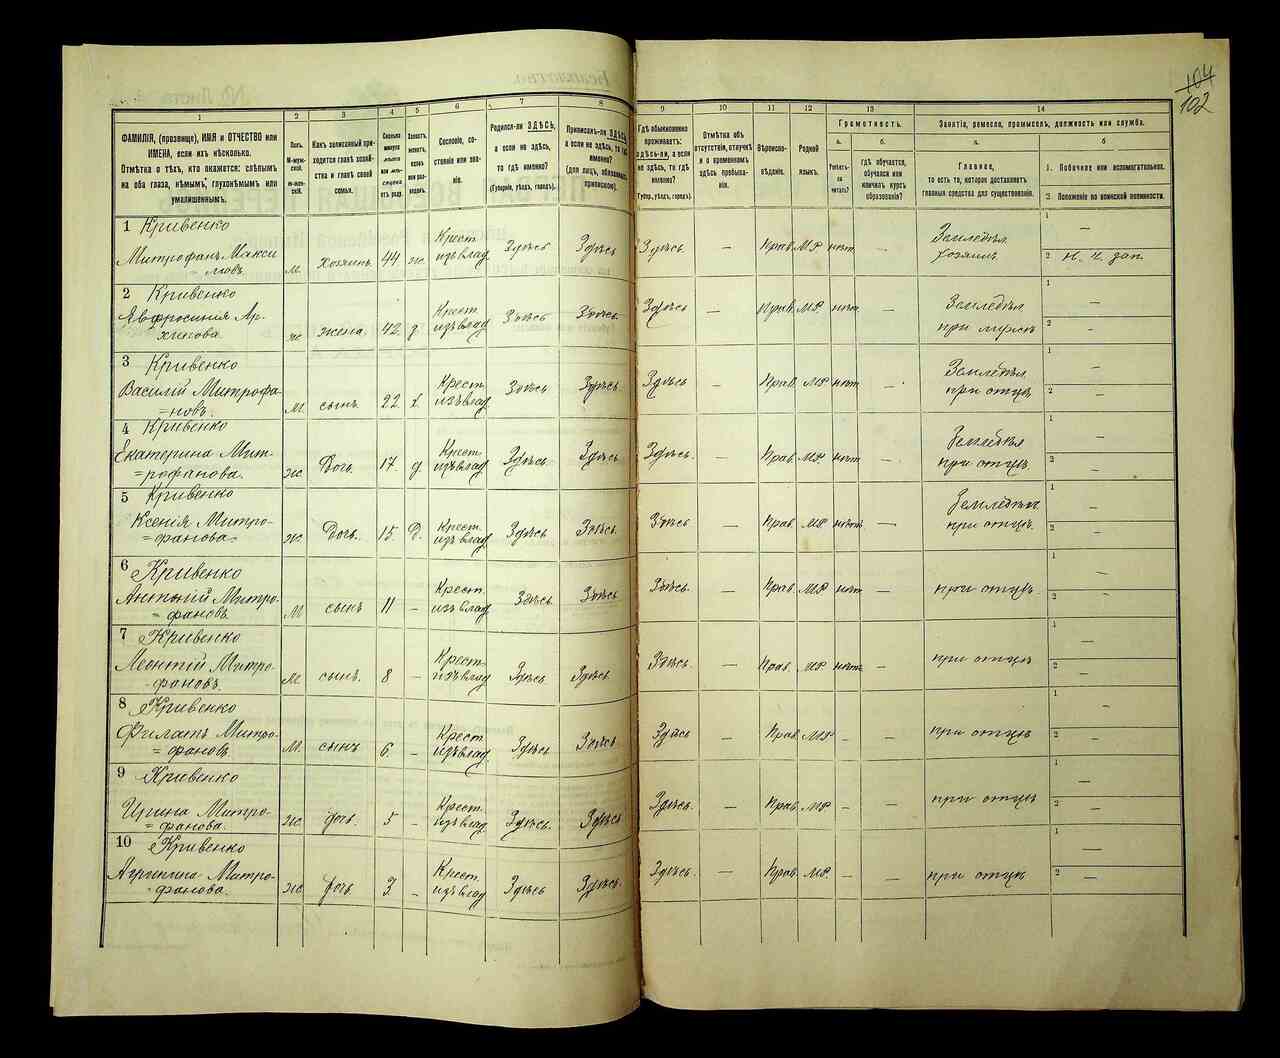 104
102
1
2
3
4
5
6
7
8
9
10
11
12
13
14
ФАМИЛІЯ, (прозвище), ИМЯ и ОТЧЕСТВО или
ИМЕНА, если ихъ нѣсколько.
Отмѣтка о тѣхъ, кто окажется: слѣпымъ
на оба глаза, нѣмымъ, глухонѣмымъ или
умалишеннымъ.
Полъ.
М-муж-
ской.
Ж-жен-
скій.
Какъ записанный при-
ходится главѣ хозяй-
ства и главѣ своей
семьи.
Сколько
минуло
лѣтъ
или мѣ-
сяцевъ
отъ роду.
Холостъ,
женатъ,
вдовъ
или раз-
веденъ.
Сословіе, со-
стояніе или зва-
ніе.
Родился-ли ЗДѢСЬ,
а если не здѣсь,
то гдѣ именно?
(Губернія, уѣздъ, городъ).
Приписанъ-ли ЗДѢСЬ,
а если не здѣсь, то гдѣ
именно?
(для лицъ, обязанныхъ
припискою).
Гдѣ обыкновенно
проживаетъ:
здѣсь-ли, а если
не здѣсь, то гдѣ
именно?
(Губер., уѣздъ, городъ).
Отмѣтка объ
отсутствіи, отлучкѣ
и о временномъ
здѣсь пребыва-
ніи.
Вѣроиспо-
вѣданіе.
Родной
языкъ.
Грамотность.
а.
б.
Умѣетъ-
ли
читать?
гдѣ обучается,
обучался или
кончилъ курсъ
образованія?
Занятія, ремесло, промыселъ, должность или служба.
а.
б
Главное,
то есть то, которое доставляетъ
главныя средства для существованія.
1. Побочное или вспомогательное.
2. Положеніе по воинской повинности.
1 Кривенко
Митрофанъ Макси
=мовъ м. хозяинъ 44 ж. Крест. изъ влад Здѣсь Здѣсь Здѣсь. — Прав. МР. нѣт. - Земледѣл. хозяинъ 1 — 2 н. ч. зап.
2 Кривенко
Евфросинія Ар-
хипова. ж. жена. 42. Крест. изъ влад. Здѣсь Здѣсь. Здѣсь — Прав. МР. нѣт. - Земледѣл при мужѣ 1 — 2 —
3 Кривенко
Василій Митрофа-
=новъ. м. сынъ. 22 х. Крест. изъ влад Здѣсь Здѣсь. Здѣсь — Прав. МР нѣт. - Земледѣл при отцѣ 1 — 2 —
4 Кривенко
Екатерина Мит-
=рофанова. ж. Дочь. 17 д Крест. изъ влад Здѣсь Здѣсь Здѣсь. — Прав. МР. нѣт. - Земледѣл при отцѣ. 1 — 2 —
5 Кривенко
Ксенія Митро-
=фанова= ж Дочь. 15. Д. Крест. изъ влад. Здѣсь Здѣсь. Здѣсь — Прав. МР нѣт — Земледѣл. при отцѣ. 1 — 2 —
6 Кривенко
Антоній Митро-
=фановъ. М сынъ 11 - Крест. изъ влад Здѣсь. Здѣсь Здѣсь. — Прав. МР нѣт - при отцѣ. 1 — 2 —
7 Кривенко
Леонтій Митро-
фановъ. М. сынъ. 8 - Крест. изъ влад Здѣсь Здѣсь Здѣсь — Прав. МР нѣт. - при отцѣ 1 — 2 —
8 Кривенко
Филатъ Митро-
=фановъ. М. сынъ 6. - Крест. изъ влад. Здѣсь Здѣсь. Здѣсь — Прав. МР. - - при отцѣ 1 - 2 —
9 Кривенко
Ирина Митро-
=фанова. ж. дочь. 5 - Крест. изъ влад. Здѣсь. Здѣсь Здѣсь. — Прав. МР. — - при отцѣ 1 — 2 —
10 Кривенко
Агрипина Митро-
-фанова. ж. дочь 3. - Крест. изъ влад Здѣсь Здѣсь Здѣсь. — Прав. МР. - - при отцѣ 1 — 2 —